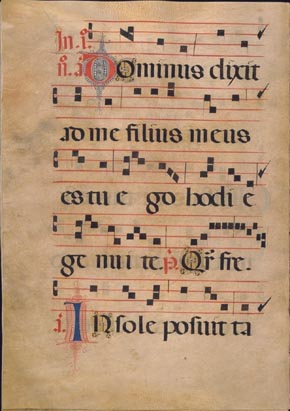 In. i. n. a. Dominus dixit
ad me filius meus
es tu e go hodi e
ge nui te. p̄. Qr̄ fre.
i. IN sole posuit ta